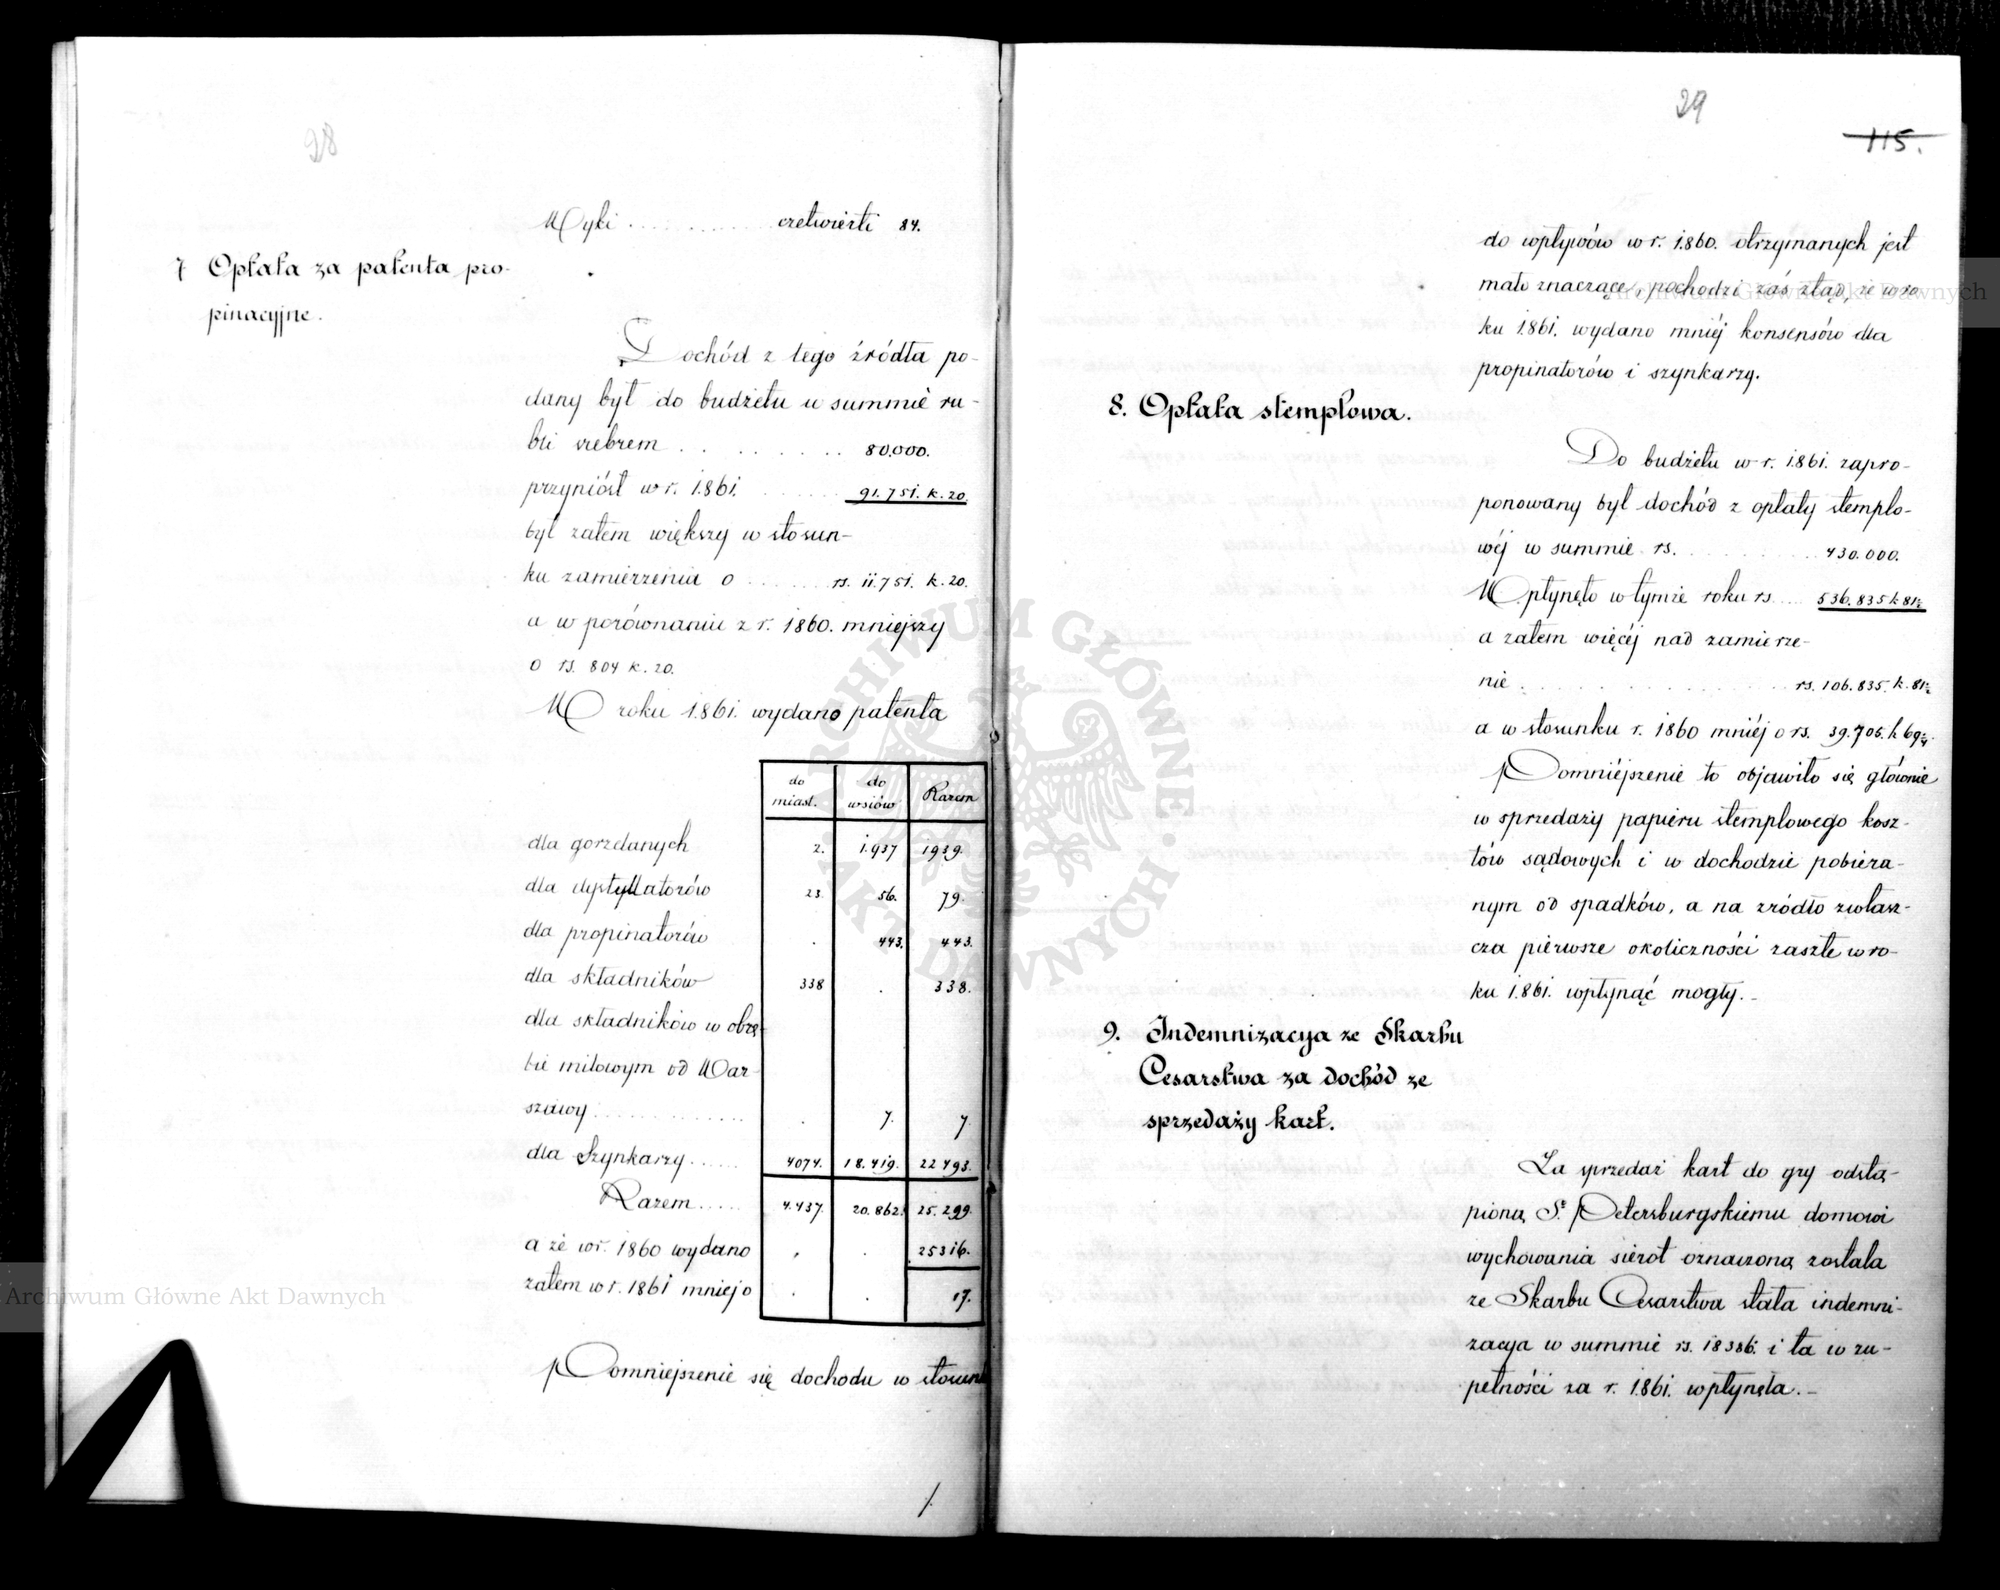 28
Wyki . . . . . . . . . . . czetwierti 84.
7 Opłata za patenta pro-
pinacyjne.
Dochód z tego źródła po-
dany był do budżetu w summie ru-
bli srebrem . . . . . . . . 80,000.
przyniósł w r. 1861. . . . . . 91.751. k. 20.
był zatem większy w stosun-
ku zamierzenia o . . . . . . rs. 11.751. k. 20.
a w porównaniu z r. 1860. mniejszy
o rs. 804 k. 20.
W roku 1861. wydano patenta
do miast. do wsiów Razem
dla gorzelanych 2. 1.937 1939.
dla dystyllatorów 23 56. 79.
dla propinatorów . 443. 443.
dla składników 338 . 338.
dla składników w obrę-
bie milowym od War-
szawy . . . . . . . . . . . 7. 7
dla Szynkarzy . . . . . 4074. 18.419. 22493.
Razem . . . . . 4.437. 20.862. 25.299.
a że w r. 1860 wydano . . 25316.
zatem w r. 1861 mniej o . . 17.
Pomniejszenie się dochodu w stosun
29
115.
do wpływów w r. 1860. otrzymanych jest
mało znaczące, pochodzi zaś ztąd, że w ro-
ku 1861. wydano mniéj konsensów dla
propinatorów i szynkarzy.
8. Opłata stemplowa.
Do budżetu w r. 1861. zapro-
ponowany był dochód z opłaty stemplo-
wéj w summie rs. . . . . . . . . 430.000.
Wpłynęło w tymże roku rs. . . . 536.835 k 81½
a zatem więcéj nad zamierze-
nie . . . . . . . . . . . . . . . rs. 106.835. k. 81½
a w stosunku r. 1860 mniéj o rs. 39.705. k 69¾.
Pomniéjszenie to objawiło się głównie
w sprzedaży papieru stemplowego kosz-
tów sądowych i w dochodzie pobiera-
nym od spadków, a na źródło zwłasz-
cza piérwsze okoliczności zaszłe w ro-
ku 1861. wpłynąć mogły.-
9. Indemnizacya ze Skarbu
Cesarstwa za dochód ze
sprzedaży kart.
Za sprzedaż kart do gry odstą-
pioną St Petersburgskiemu domowi
wychowania sierot oznaczoną została
ze Skarbu Cesarstwa stała indemni-
zacya w summie rs. 18386. i ta w zu-
pełności za r. 1861. wpłynęła.-
ARCHIWUM GŁÓWNE AKT DAWNYCH
Archiwum Główne Akt Dawnych
Archiwum Główne Akt Dawnych